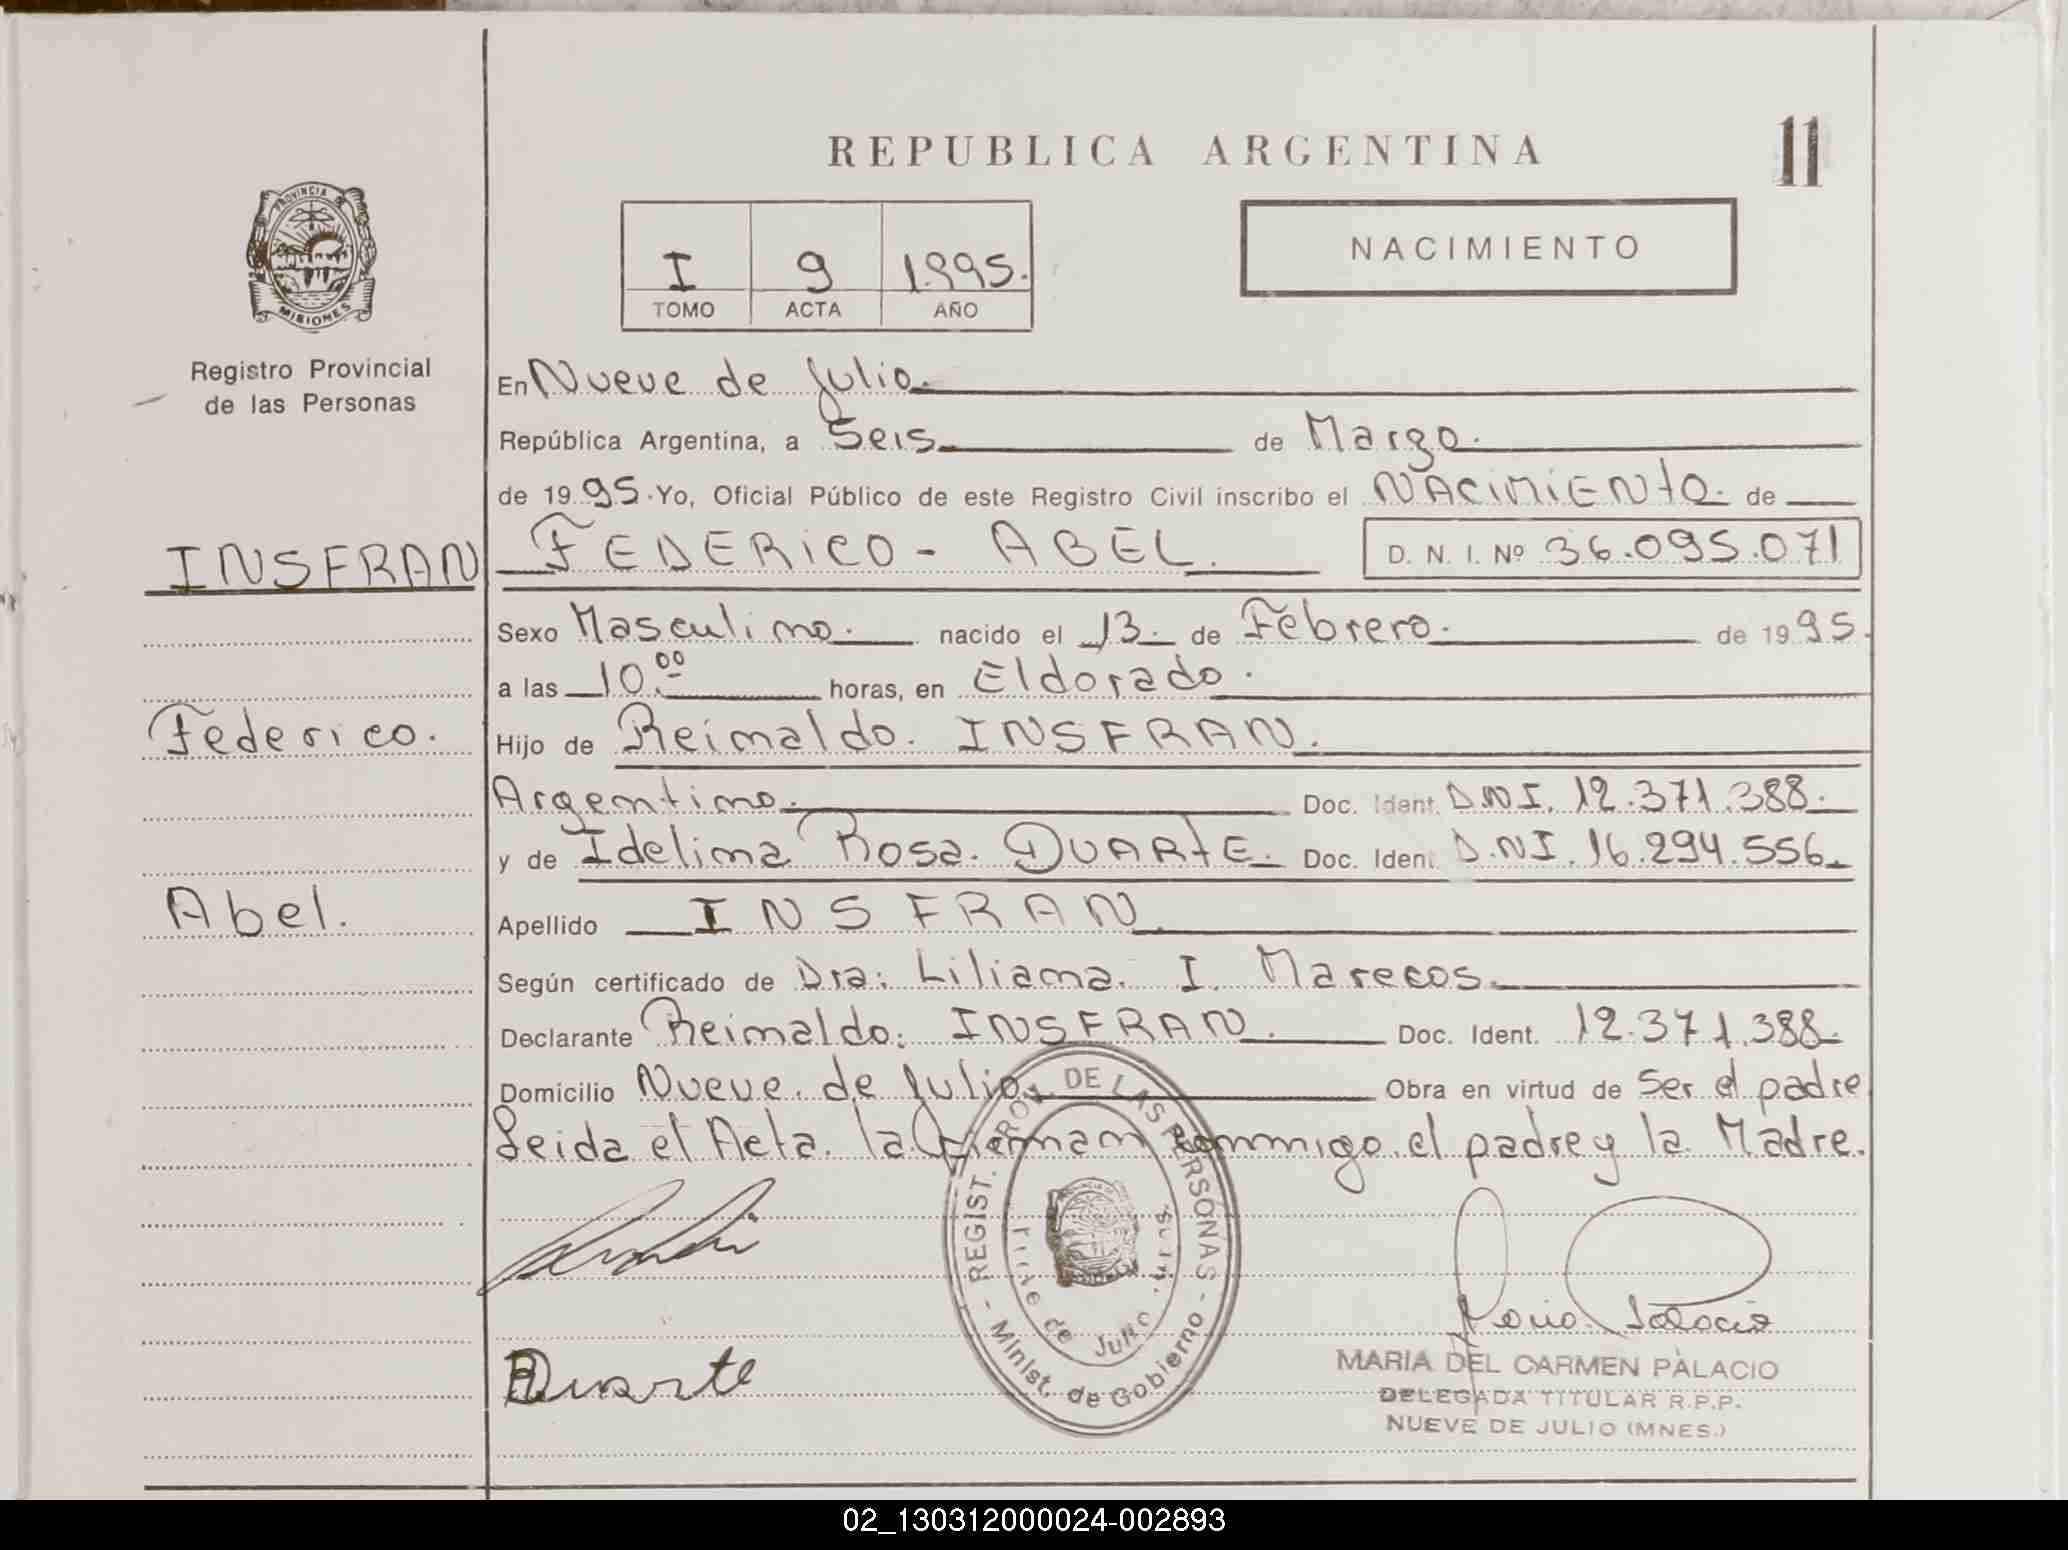 REPUBLICA ARGENTINA
11
PROVINCIA DE
MISIONES
Registro Provincial
de las Personas
I 9 1995.
TOMO ACTA AÑO
NACIMIENTO
En Nueve de Julio.
República Argentina, a Seis de Marzo.
de 1995. Yo, Oficial Público de este Registro Civil inscribo el NACIMIENTO. de
INSFRAN FEDERICO - ABEL. D. N. I. Nº 36.095.071
Sexo Masculino. nacido el 13. de Febrero. de 1995.
a las 10.00 horas, en Eldorado.
Federico. Hijo de Reimaldo. INSFRAN.
Argentino. Doc. Ident. D.N.I. 12.371.388.
y de Idelima Rosa. DUARTE. Doc. Ident. D.N.I. 16.294.556.
Abel. Apellido INSFRAN.
Según certificado de Dra: Liliana. I. Marecos.
Declarante Reimaldo: INSFRAN. Doc. Ident. 12.371.388.
Domicilio Nueve. de Julio. Obra en virtud de Ser el padre
Leida el Acta. la firman conmigo el padre y la Madre.
REGIST. PROV. DE LAS PERSONAS
- Minist. de Gobierno -
Nueve de Julio, Mnes.
Duarte
Maria Palacio
MARIA DEL CARMEN PALACIO
DELEGADA TITULAR R.P.P.
NUEVE DE JULIO (MNES.)
02_130312000024-002893